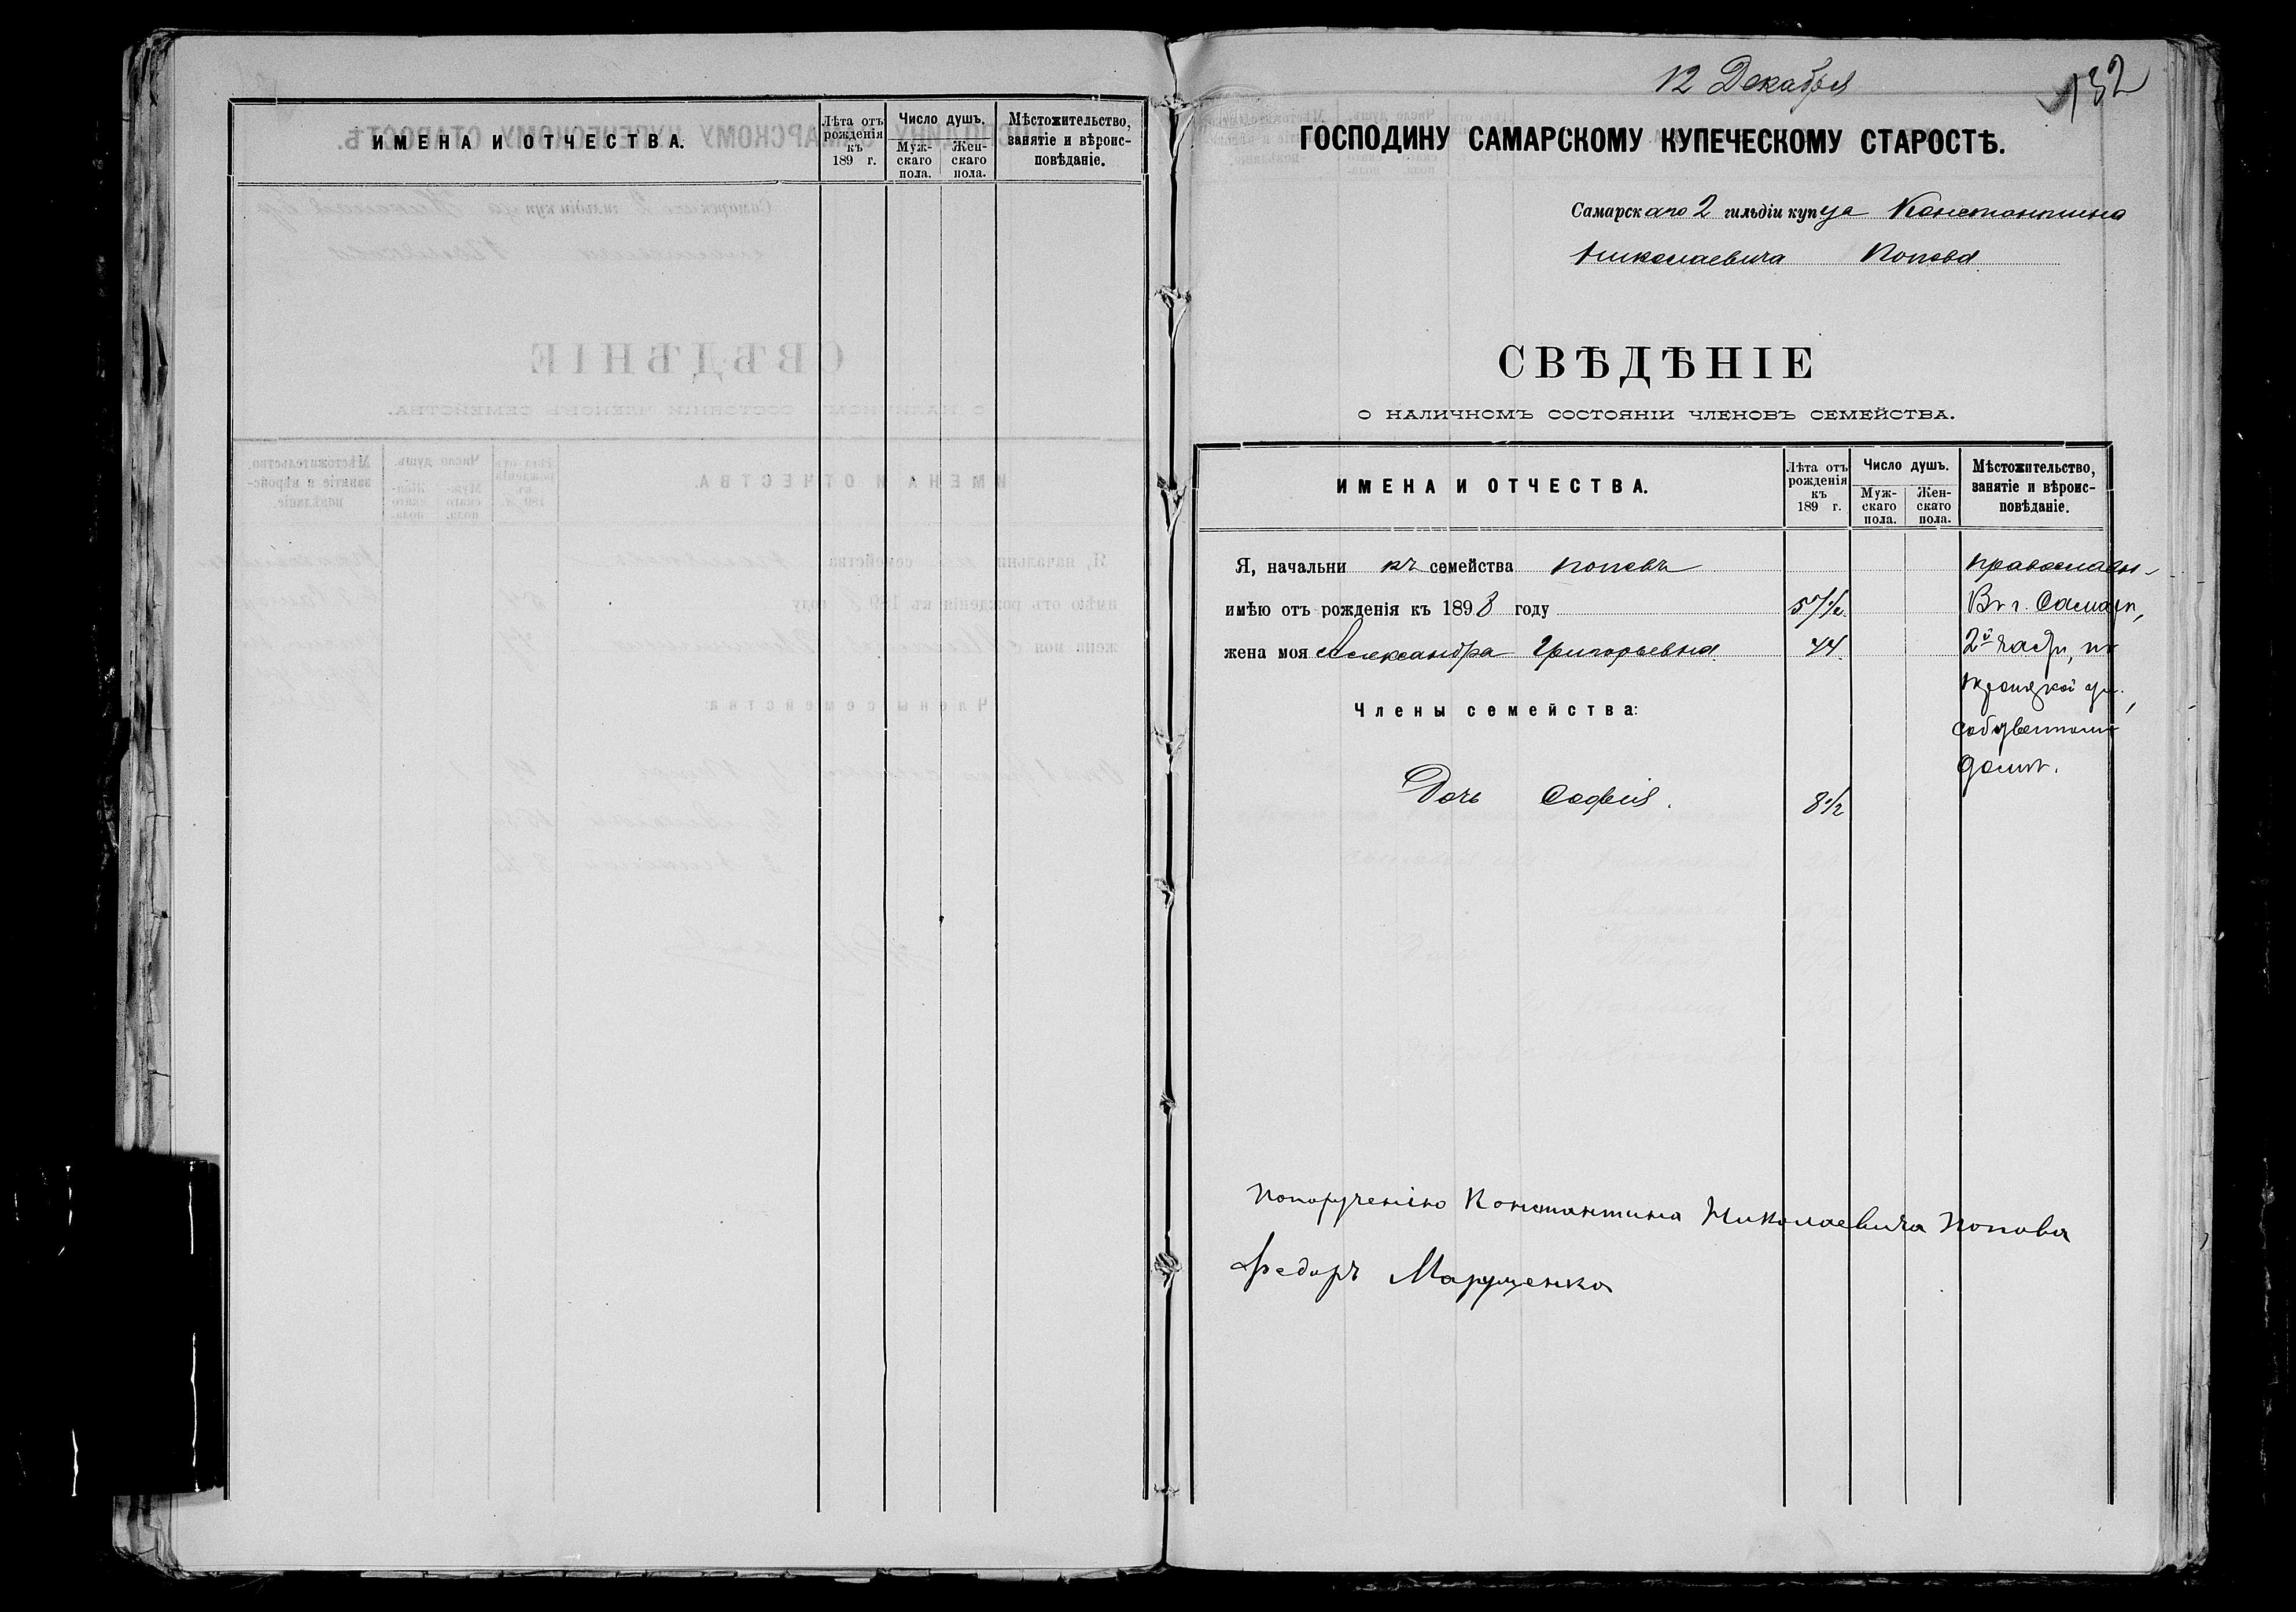 ИМЕНА И ОТЧЕСТВА.
Лѣта отъ рожденія къ 189 г.
Число душъ.
Муж-скаго пола.
Жен-скаго пола.
Мѣстожительство, занятіе и вѣроис-повѣданіе.
12 Декабря
132
ГОСПОДИНУ САМАРСКОМУ КУПЕЧЕСКОМУ СТАРОСТѢ.
Самарскаго 2 гильдіи купца Константина
Николаевича Попова
СВѢДѢНІЕ
О НАЛИЧНОМЪ СОСТОЯНІИ ЧЛЕНОВЪ СЕМЕЙСТВА.
ИМЕНА И ОТЧЕСТВА.
Лѣта отъ рожденія къ 189 г.
Число душъ.
Муж-скаго пола.
Жен-скаго пола.
Мѣстожительство, занятіе и вѣроис-повѣданіе.
Я, начальникъ семейства Поповъ
имѣю отъ рожденія къ 1898 году 57 1/2
жена моя Александра Григорьевна 44
Члены семейства:
Дочь Софія. 8 1/2
православн-
Въ г. Самарѣ,
2й части, по
Троицкой ул.,
собственномъ
домѣ.
По порученію Константина Николаевича Попова
Федоръ Марущенко